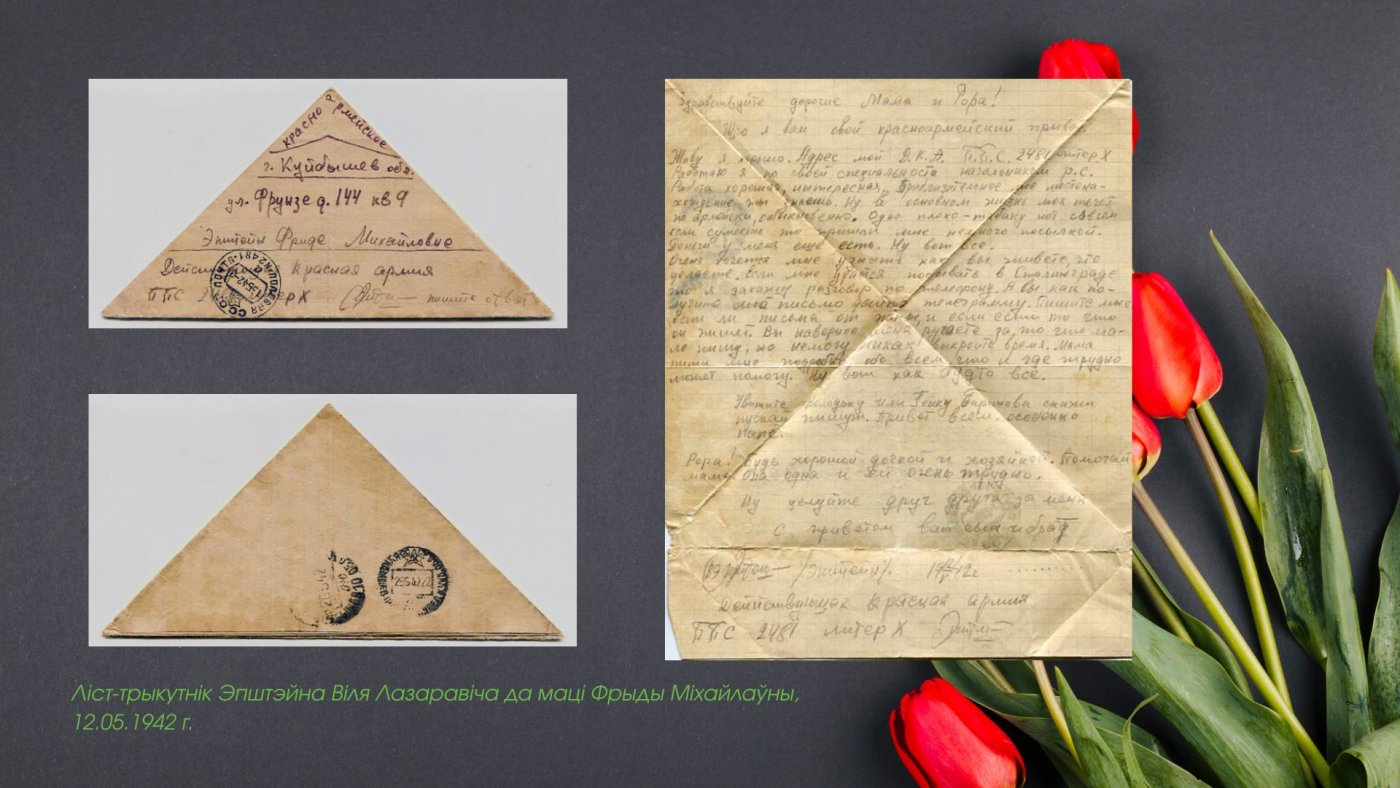 красноармейское
г. Куйбышев обл.
ул. Фрунзе д. 144 кв 9
Эпштейн Фриде Михайловне
Красная армия
ППС литер Х пишите ответ
Здравствуйте дорогие Мама и Рора!
Шлю я вам свой красноармейский привет.
Живу я хорошо. Адрес мой Д.К.А. П.П.С. 2481 литер Х
Работаю я по своей специальности начальником р.с.
Работа хорошая, интересная. Приблизительное мое местона-
хождение ты знаешь. Ну в основном жизнь моя течет
по Армейски, обыкновенно. Одно плохо - табаку нет совсем
если сумеешь то пришли мне немного посылкой.
Деньги у меня еще есть. Ну вот все.
Очень хочется мне узнать как вы живете, что
делаете. Если мне удастся побывать в Сталинграде
то я закажу разговор по телефону. А вы как по-
лучите моё письмо дайте телеграмму. Пишите мне
есть ли письма от папы и если есть то что
он пишет. Вы наверное меня ругаете за то что ма-
ло пишу, но немогу никак выкроить время. Мама
пиши мне подробно обо всем, что и где трудно
может помогу. Ну вот как будто все.
Увидите или Генку скажи
пускай пишут. Привет всем особенно
папе.
Рора! Будь хорошей дочкой и хозяйкой. Помогай
маме она одна и ей очень трудно.
Ну целуйте друг друга за меня
С приветом ваш сын и брат
/Эпштейн/. 42г
Действующая Красная армия
ППС 2481 литер Х
Ліст-трыкутнік Эпштэйна Віля Лазаравіча да маці Фрыды Міхайлаўны,
12.05.1942 г.